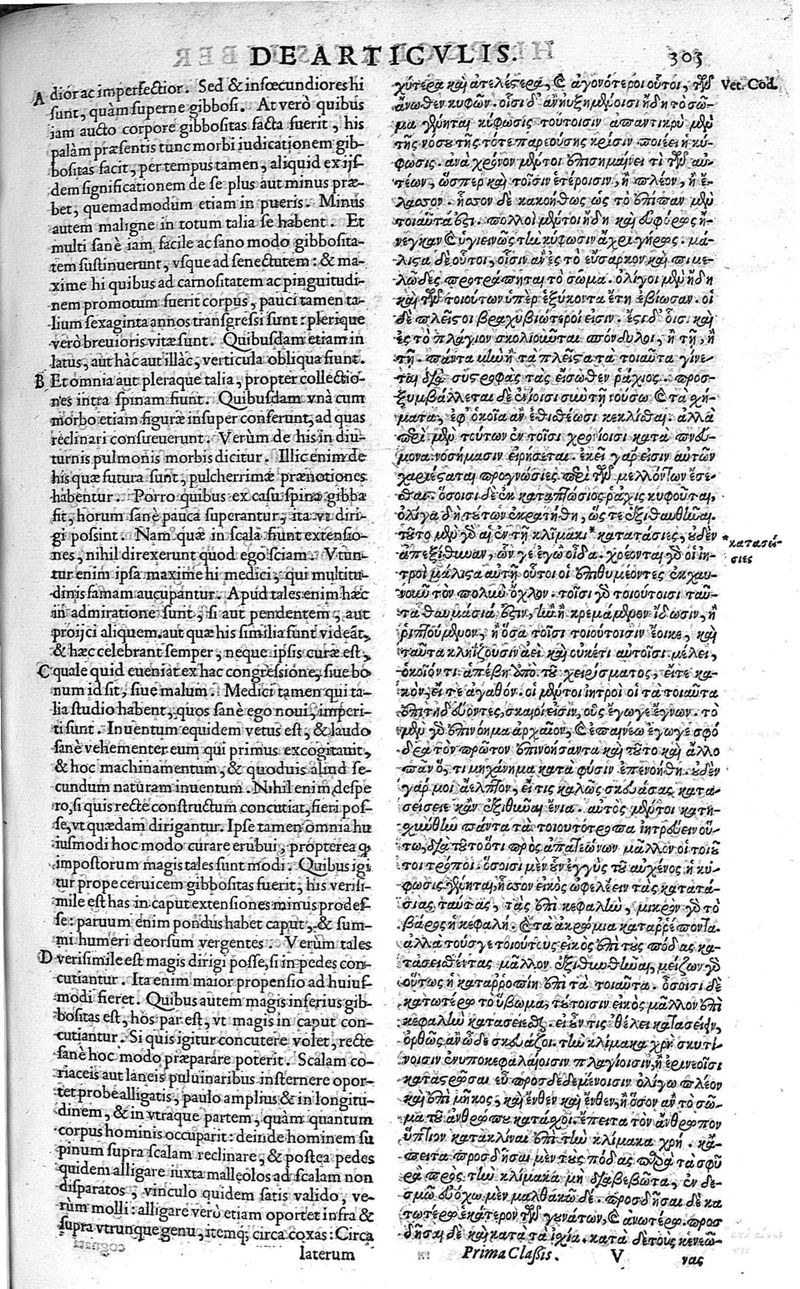 DE ARTICVLIS.
303
A dior ac imperfectior. Sed & infœcundiores hi
sunt, quàm superne gibbosi. At verò quibus
iam aucto corpore gibbositas facta fuerit, his
palàm præsentis tunc morbi iudicationem gib-
bositas facit, per tempus tamen, aliquid ex ijs-
dem significationem de se plus aut minus præ-
bet, quemadmodum etiam in pueris. Minus
autem maligne in totum talia se habent. Et
multi sanè iam, facile ac sano modo gibbosita-
tem sustinuerunt, vsque ad senectutem: & ma-
xime hi quibus ad carnositatem ac pinguitudi-
nem promotum fuerit corpus, pauci tamen ta-
lium sexaginta annos transgressi sunt: plerique
verò breuioris vitæ sunt. Quibusdam etiam in
latus, aut hàc aut illàc, verticula obliqua fiunt.
B Et omnia aut pleraque talia, propter collectio-
nes intra spinam fiunt. Quibusdam vnà cum
morbo etiam figuræ insuper conferunt, ad quas
reclinari consueuerunt. Verùm de his in diu-
turnis pulmonis morbis dicitur. Illic enim de
his quæ futura sunt, pulcherrimæ prænotiones
habentur. Porro quibus ex casu spina gibba
fit, horum sanè pauca superantur, ita vt diri-
gi possint. Nam quæ in scala fiunt extensio-
nes, nihil direxerunt quod ego sciam. Vtun-
tur enim ipsa maxime hi medici, qui multitu-
dinis famam aucupantur. Apud tales enim hæc
in admiratione sunt, si aut pendentem, aut
proijci aliquem aut quæ his similia sunt videāt,
& hæc celebrant semper, neque ipsis curæ est,
C quale quid eueniat ex hac congressione, siue bo
num id sit, siue malum. Medici tamen qui ta-
lia studio habent, quos sanè ego noui, imperi-
ti sunt. Inuentum equidem vetus est, & laudo
sanè vehementer eum qui primus excogitauit,
& hoc machinamentum, & quoduis aliud se-
cundum naturam inuentum. Nihil enim despe
ro, si quis recte constructum concutiat, fieri pos-
se, vt quædam dirigantur. Ipse tamen omnia hu
iusmodi hoc modo curare erubui, propterea q̃
impostorum magis tales sunt modi. Quibus igi
tur prope ceruicem gibbositas fuerit, his verisi-
mile est has in caput extensiones minus prodes-
se: paruum enim pondus habet caput, & sum-
mi humeri deorsum vergentes. Verùm tales
D verisimile est magis dirigi posse, si in pedes con-
cutiantur. Ita enim maior propensio ad huius-
modi fieret. Quibus autem magis inferius gib-
bositas est, hos par est, vt magis in caput con-
cutiantur. Si quis igitur concutere volet, recte
sanè hoc modo præparare poterit. Scalam co-
riaceis aut laneis puluinaribus insternere opor-
tet probe alligatis, paulo amplius & in longitu-
dinem, & in vtraque partem, quàm quantum
corpus hominis occuparit: deinde hominem su
pinum supra scalam reclinare, & postea pedes
quidem alligare iuxta malleolos ad scalam non
disparatos, vinculo quidem satis valido, ve-
rùm molli: alligare verò etiam oportet infra &
supra vtrunque genu, itemq́; circa coxas: Circa
laterum
χύτερα καὶ ἀτελέστερα, καὶ ἀγονότεροι οὗτοι, τῶν Vet. Cod.
ἄνωθεν κυφῶν. οἷσι δ' ἂν ηὐξημένοισι ἤδη τὸ σῶ-
μα γένηται κύφωσις τούτοισιν ἀπαντικρὺ μὲν
τῆς νόσου τῆς τότε παρεούσης κρίσιν ποιέει ἡ κύ-
φωσις. ἀνὰ χρόνον μέντοι ἐπισημαίνει τὶ τῶν αὐ-
τέων, ὥσπερ καὶ τοῖσιν ἑτέροισιν, ἢ πλέον, ἢ ἔ-
λασσον. ἧσσον δὲ κακοήθως ὡς τὸ ἐπίπαν μὲν
τοιαῦτά ἐστι. πολλοὶ μέντοι ἤδη καὶ εὐφόρως ἤ-
νεγκαν καὶ ὑγιεινῶς τὴν κύφωσιν ἄχρι γήρως. μά-
λιστα δὲ οὗτοι, οἷσιν ἂν ἐς τὸ εὔσαρκον καὶ πιμε-
λῶδες προτράπηται τὸ σῶμα. ὀλίγοι μὲν ἤδη
καὶ τῶν τοιούτων ὑπὲρ ἑξήκοντα ἔτη ἐβίωσαν. οἱ
δὲ πλεῖστοι βραχυβιώτεροί εἰσιν. ἔστι δ' οἷσι καὶ
ἐς τὸ πλάγιον σκολιοῦνται σπόνδυλοι, ἢ τῇ, ἢ
τῇ. πάντα μὴν ἢ τὰ πλεῖστα τὰ τοιαῦτα γίνε-
ται διὰ συστροφὰς τὰς εἴσωθεν ῥάχιος. προσ-
ξυμβάλλεται δὲ ἐνίοισι σὺν τῇ νούσῳ καὶ τὰ σχή-
ματα, ἐφ' ὁκοῖα ἂν ἐθισθέωσι κεκλίσθαι. ἀλλὰ
περὶ μὲν τούτων ἐν τοῖσι χρονίοισι κατὰ πνεύ-
μονα νοσήμασιν εἰρήσεται. ἐκεῖ γάρ εἰσιν αὐτῶν
χαριέσταται προγνώσιες περὶ τῶν μελλόντων ἔσε-
σθαι. ὅσοισι δὲ ἐκ καταπτώσιος ῥάχις κυφοῦται,
ὀλίγα δὴ τούτων ἐκρατήθη, ὥστε ἐξιθυνθῆναι.
τοῦτο μὲν γὰρ αἱ ἐν τῇ κλίμακι * κατατάσιες, οὐδὲν
* κατασεί-
σιες
ἀπεξίθυναν, ὧν γε ἐγὼ οἶδα. χρέονται γὰρ οἱ ἰη-
τροὶ μάλιστα αὐτῇ οὗτοι οἱ ἐπιθυμέοντες ἐκχαυ-
νοῦν τὸν πολὺν ὄχλον. τοῖσι γὰρ τοιούτοισι ταῦ-
τα θαυμάσιά ἐστιν, ἢν ἢ κρεμάμενον ἴδωσιν, ἢ
ῥιπτούμενον, ἢ ὅσα τοῖσι τοιούτοισιν ἔοικε, καὶ
ταῦτα κληΐζουσιν ἀεὶ καὶ οὐκέτι αὐτοῖσι μέλει,
ὁκοῖόν τι ἀπέβη ἀπὸ τοῦ χειρίσματος, εἴτε κα-
κὸν, εἴτε ἀγαθόν. οἱ μέντοι ἰητροὶ οἱ τὰ τοιαῦτα
ἐπιτηδεύοντες, σκαιοί εἰσιν, οὓς ἔγωγε ἔγνων. τὸ
μὲν γὰρ ἐπινόημα ἀρχαῖον, καὶ ἐπαινέω ἔγωγε σφό
δρα τὸν πρῶτον ἐπινοήσαντα καὶ τοῦτο καὶ ἄλλο
πᾶν ὅ, τι μηχάνημα κατὰ φύσιν ἐπενοήθη. οὐδὲν
γάρ μοι ἄελπτον, εἴ τις καλῶς σκευάσας, κατα-
σείσειε κἂν ἐξιθῦναι ἔνια. αὐτὸς μέντοι κατῃ-
σχύνθην πάντα τὰ τοιουτότροπα ἰητρεύειν οὕ-
τω, διὰ τοῦτο ὅτι πρὸς ἀπατεώνων μᾶλλον οἱ τοιοῦ
τοι τρόποι. ὅσοισι μὲν οὖν ἐγγὺς τοῦ αὐχένος ἡ κύ-
φωσις γένηται, ἧσσον εἰκὸς ὠφελέειν τὰς κατατά-
σιας ταύτας, τὰς ἐπὶ κεφαλὴν, μικρὸν γὰρ τὸ
βάρος ἡ κεφαλὴ. καὶ τὰ ἀκρώμια καταῤῥέποντα.
ἀλλὰ τούς γε τοιούτους εἰκὸς ἐπὶ τοὺς πόδας κα-
τασεισθέντας μᾶλλον ἐξιθυνθῆναι, μείζων γὰρ
οὕτως ἡ καταῤῥοπίη ἐπὶ τὰ τοιαῦτα. ὅσοισι δὲ
κατωτέρω τὸ ὕβωμα, τούτοισιν εἰκὸς μᾶλλον ἐπὶ
κεφαλὴν κατασείεσθαι. εἰ οὖν τις ἐθέλει κατασείειν,
ὀρθῶς ἂν ὧδε σκευάζοι. τὴν κλίμακα χρὴ σκυτί-
νοισιν ὑποκεφαλαίοισιν πλαγίοισιν, ἢ ἐρινεοῖσι
καταστρῶσαι εὖ προσδεδεμένοισιν ὀλίγῳ πλέον
καὶ ἐπὶ μῆκος, καὶ ἔνθεν καὶ ἔνθεν, ἢ ὅσον ἂν τὸ σῶ-
μα τοῦ ἀνθρώπου κατάσχοι. ἔπειτα τὸν ἄνθρωπον
ὕπτιον κατακλῖναι ἐπὶ τὴν κλίμακα χρή. κἄ-
πειτα προσδῆσαι μὲν τοὺς πόδας παρὰ τὰ σφυ
ρὰ πρὸς τὴν κλίμακα μὴ διαβεβῶτα, ἐν δε-
σμῷ εὐόχῳ μὲν μαλθακῷ δέ. προσδῆσαι δὲ κα
τωτέρω ἑκάτερον τῶν γουνάτων, καὶ ἀνωτέρω. προσ
δῆσαι δὲ καὶ κατὰ τὰ ἰσχία. κατὰ δὲ τοὺς κενεῶ-
Prima Classis. V νας